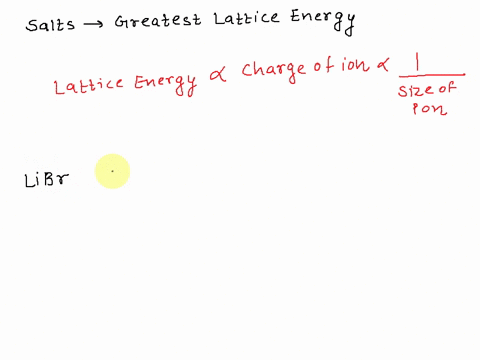 Salts → Greatest Lattice Energy
Lattice Energy ∝ Charge of ion ∝ 1
Size of
Ion
LiBr